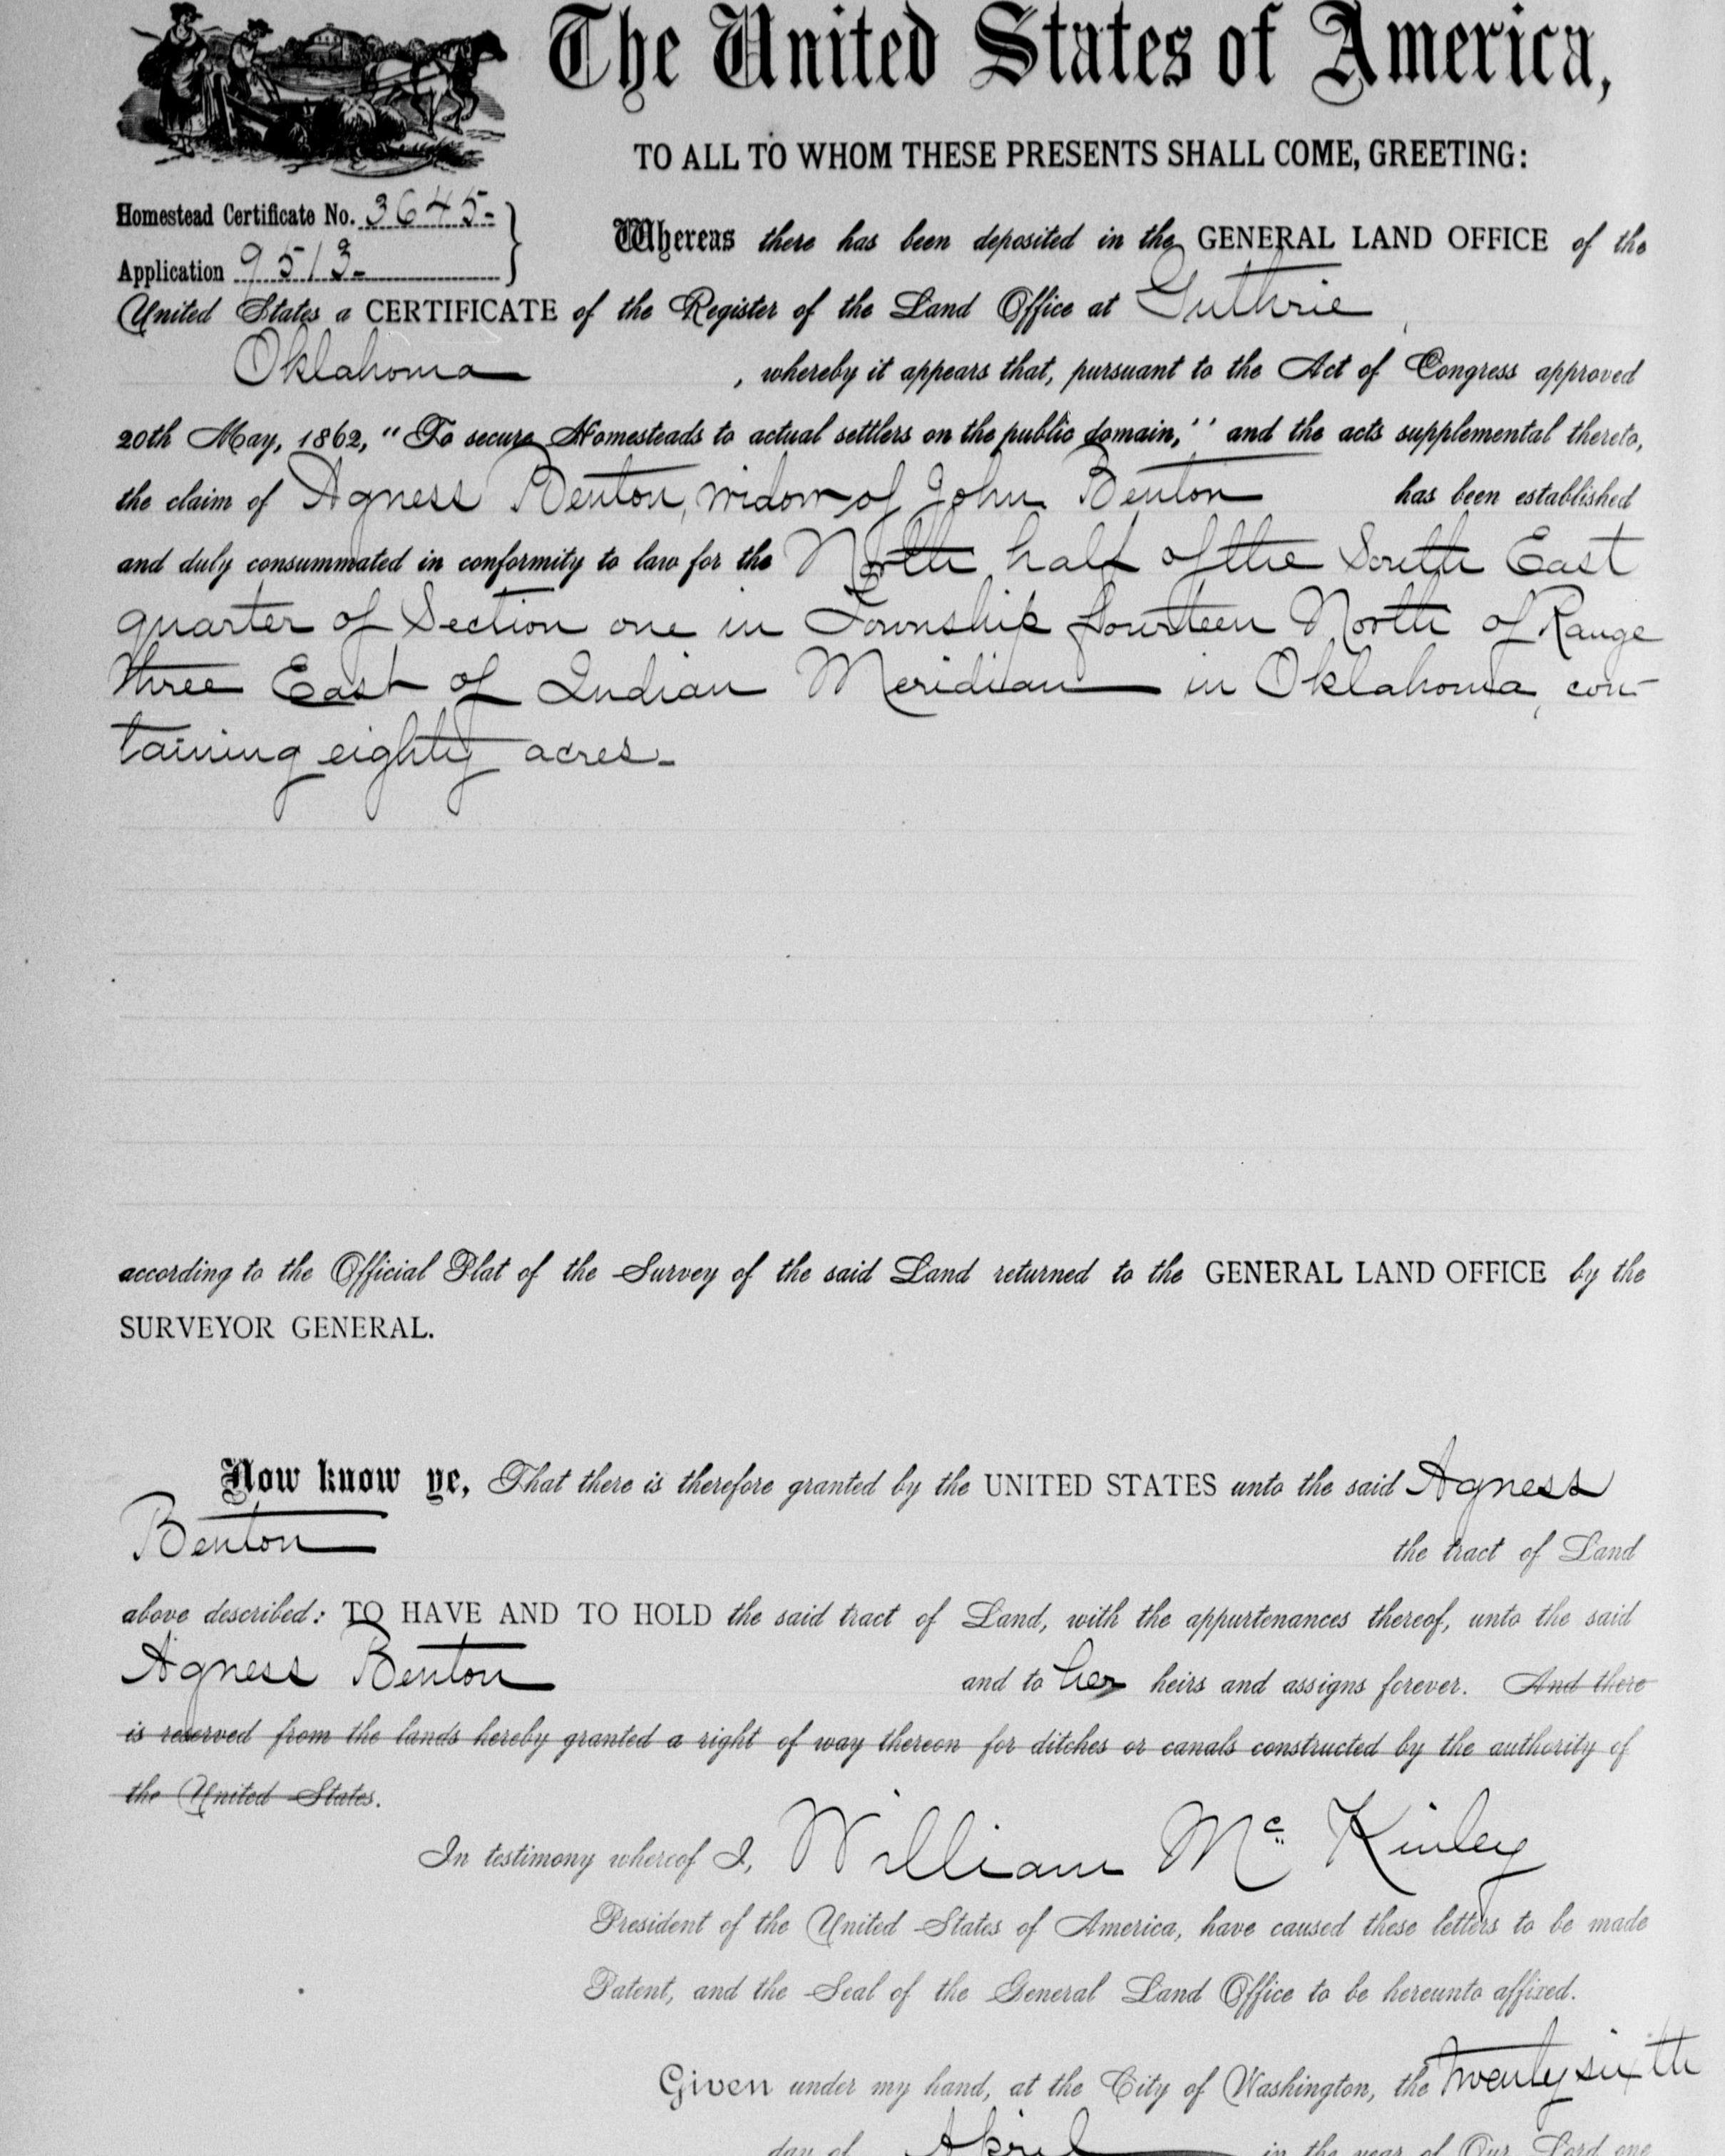 The United States of America,
TO ALL TO WHOM THESE PRESENTS SHALL COME, GREETING:
Homestead Certificate No. 3645-
Application 9513-
Whereas there has been deposited in the GENERAL LAND OFFICE of the
United States a CERTIFICATE of the Register of the Land Office at Guthrie,
Oklahoma, whereby it appears that, pursuant to the Act of Congress approved
20th May, 1862, "To secure Homesteads to actual settlers on the public domain," and the acts supplemental thereto,
the claim of Agness Benton, widow of John Benton has been established
and duly consummated in conformity to law for the North half of the South East
quarter of Section one in Township fourteen North of Range
three East of Indian Meridian in Oklahoma, con-
taining eighty acres-
according to the Official Plat of the Survey of the said Land returned to the GENERAL LAND OFFICE by the
SURVEYOR GENERAL.
Now know ye, That there is therefore granted by the UNITED STATES unto the said Agness
Benton the tract of Land
above described: TO HAVE AND TO HOLD the said tract of Land, with the appurtenances thereof, unto the said
Agness Benton and to her heirs and assigns forever. And there
is reserved from the lands hereby granted a right of way thereon for ditches or canals constructed by the authority of
the United States.
In testimony whereof I, William McKinley
President of the United States of America, have caused these letters to be made
Patent, and the Seal of the General Land Office to be hereunto affixed.
Given under my hand, at the City of Washington, the twenty sixth
day of April in the year of Our Lord one